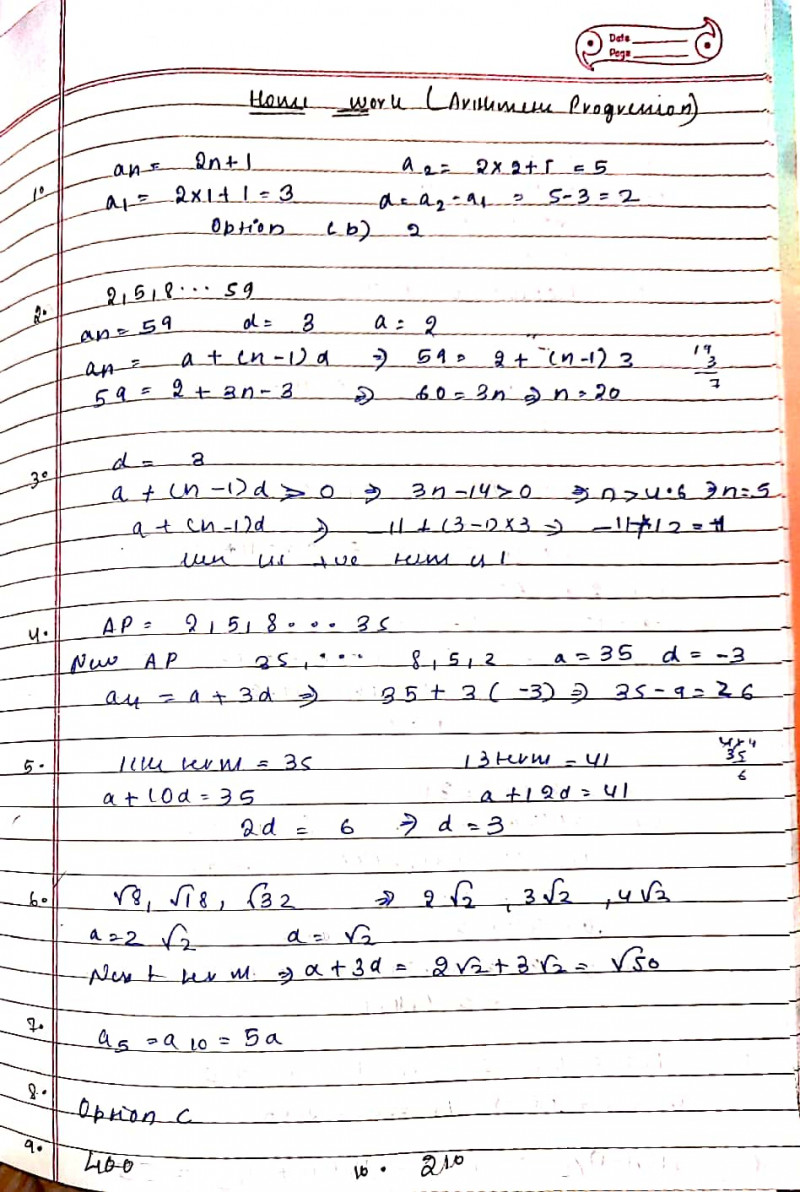 Date
Page
Home work (Arithmetic Progression)
1. an = 2n+1 a2 = 2×2+1 = 5
a1 = 2×1+1 = 3 d = a2-a1 = 5-3 = 2
Option (b) 2
2. 2,5,8... 59
an = 59 d = 3 a = 2
an = a+(n-1)d ⇒ 59 = 2+(n-1)3
59 = 2+3n-3 ⇒ 60 = 3n ⇒ n = 20
3. d = 3
a+(n-1)d > 0 ⇒ 3n-14>0 ⇒ n>4.6 ⇒ n=5
a+(n-1)d ⇒ 11+(3-1)×3 ⇒ -11+12 = 1
+ve term
4. AP = 2,5,8... 35
New AP 35,... 8,5,2 a=35 d=-3
a4 = a+3d ⇒ 35+3(-3) ⇒ 35-9=26
5. 11th term = 35 13 term = 41
a+10d = 35 a+12d = 41
2d = 6 ⇒ d = 3
6. √8, √18, √32 ⇒ 2√2, 3√2, 4√2
a=2√2 d=√2
Next term ⇒ a+3d = 2√2+3√2 = √50
7. a5 = a10 = 5a
8. Option C
9. 400 10. 210